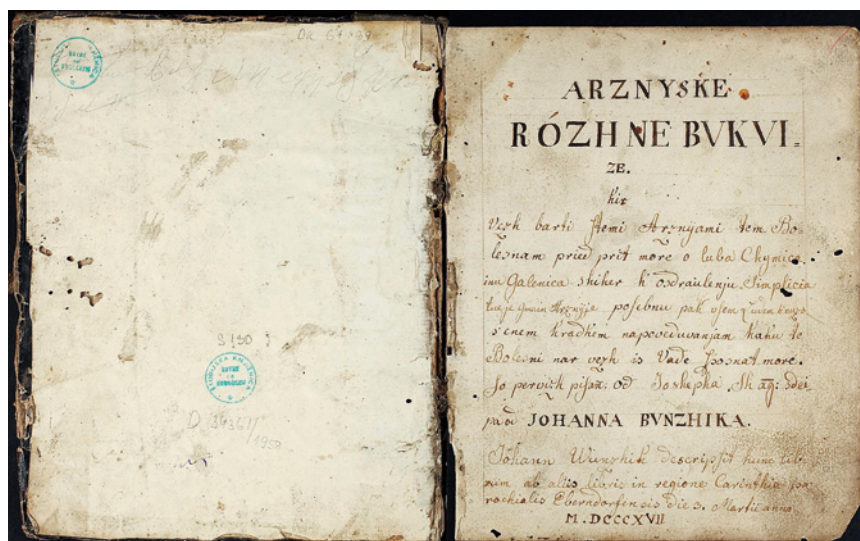 Du 64/99
ŠTUDIJSKA KNJIŽNICA
9190
D 34361/
1950
ARZNYSKE
RÓZHNE BVKVI=
ZE.
kir
Vezh barti stemi Arznyami tem Bo-
lesnam pried prit more o luba Chymica
inu Galenica skiher k osdraulenju Simplicia
Arznÿie posebnu pak vsem
s'enem kradkem napoveduvanjam kaku te
Bolesni nar vezh is Vade sposnat more.
Jo pervizh pisan: od Joshepka
pa od JOHANNA BVNZHIKA.
Johann Wunzhik descripsit hunc lib-
rum ab aliis libris in regione Carinthia pa-
rochialis Eberndorfensis die 3. Martii anno
M.DCCCXVII